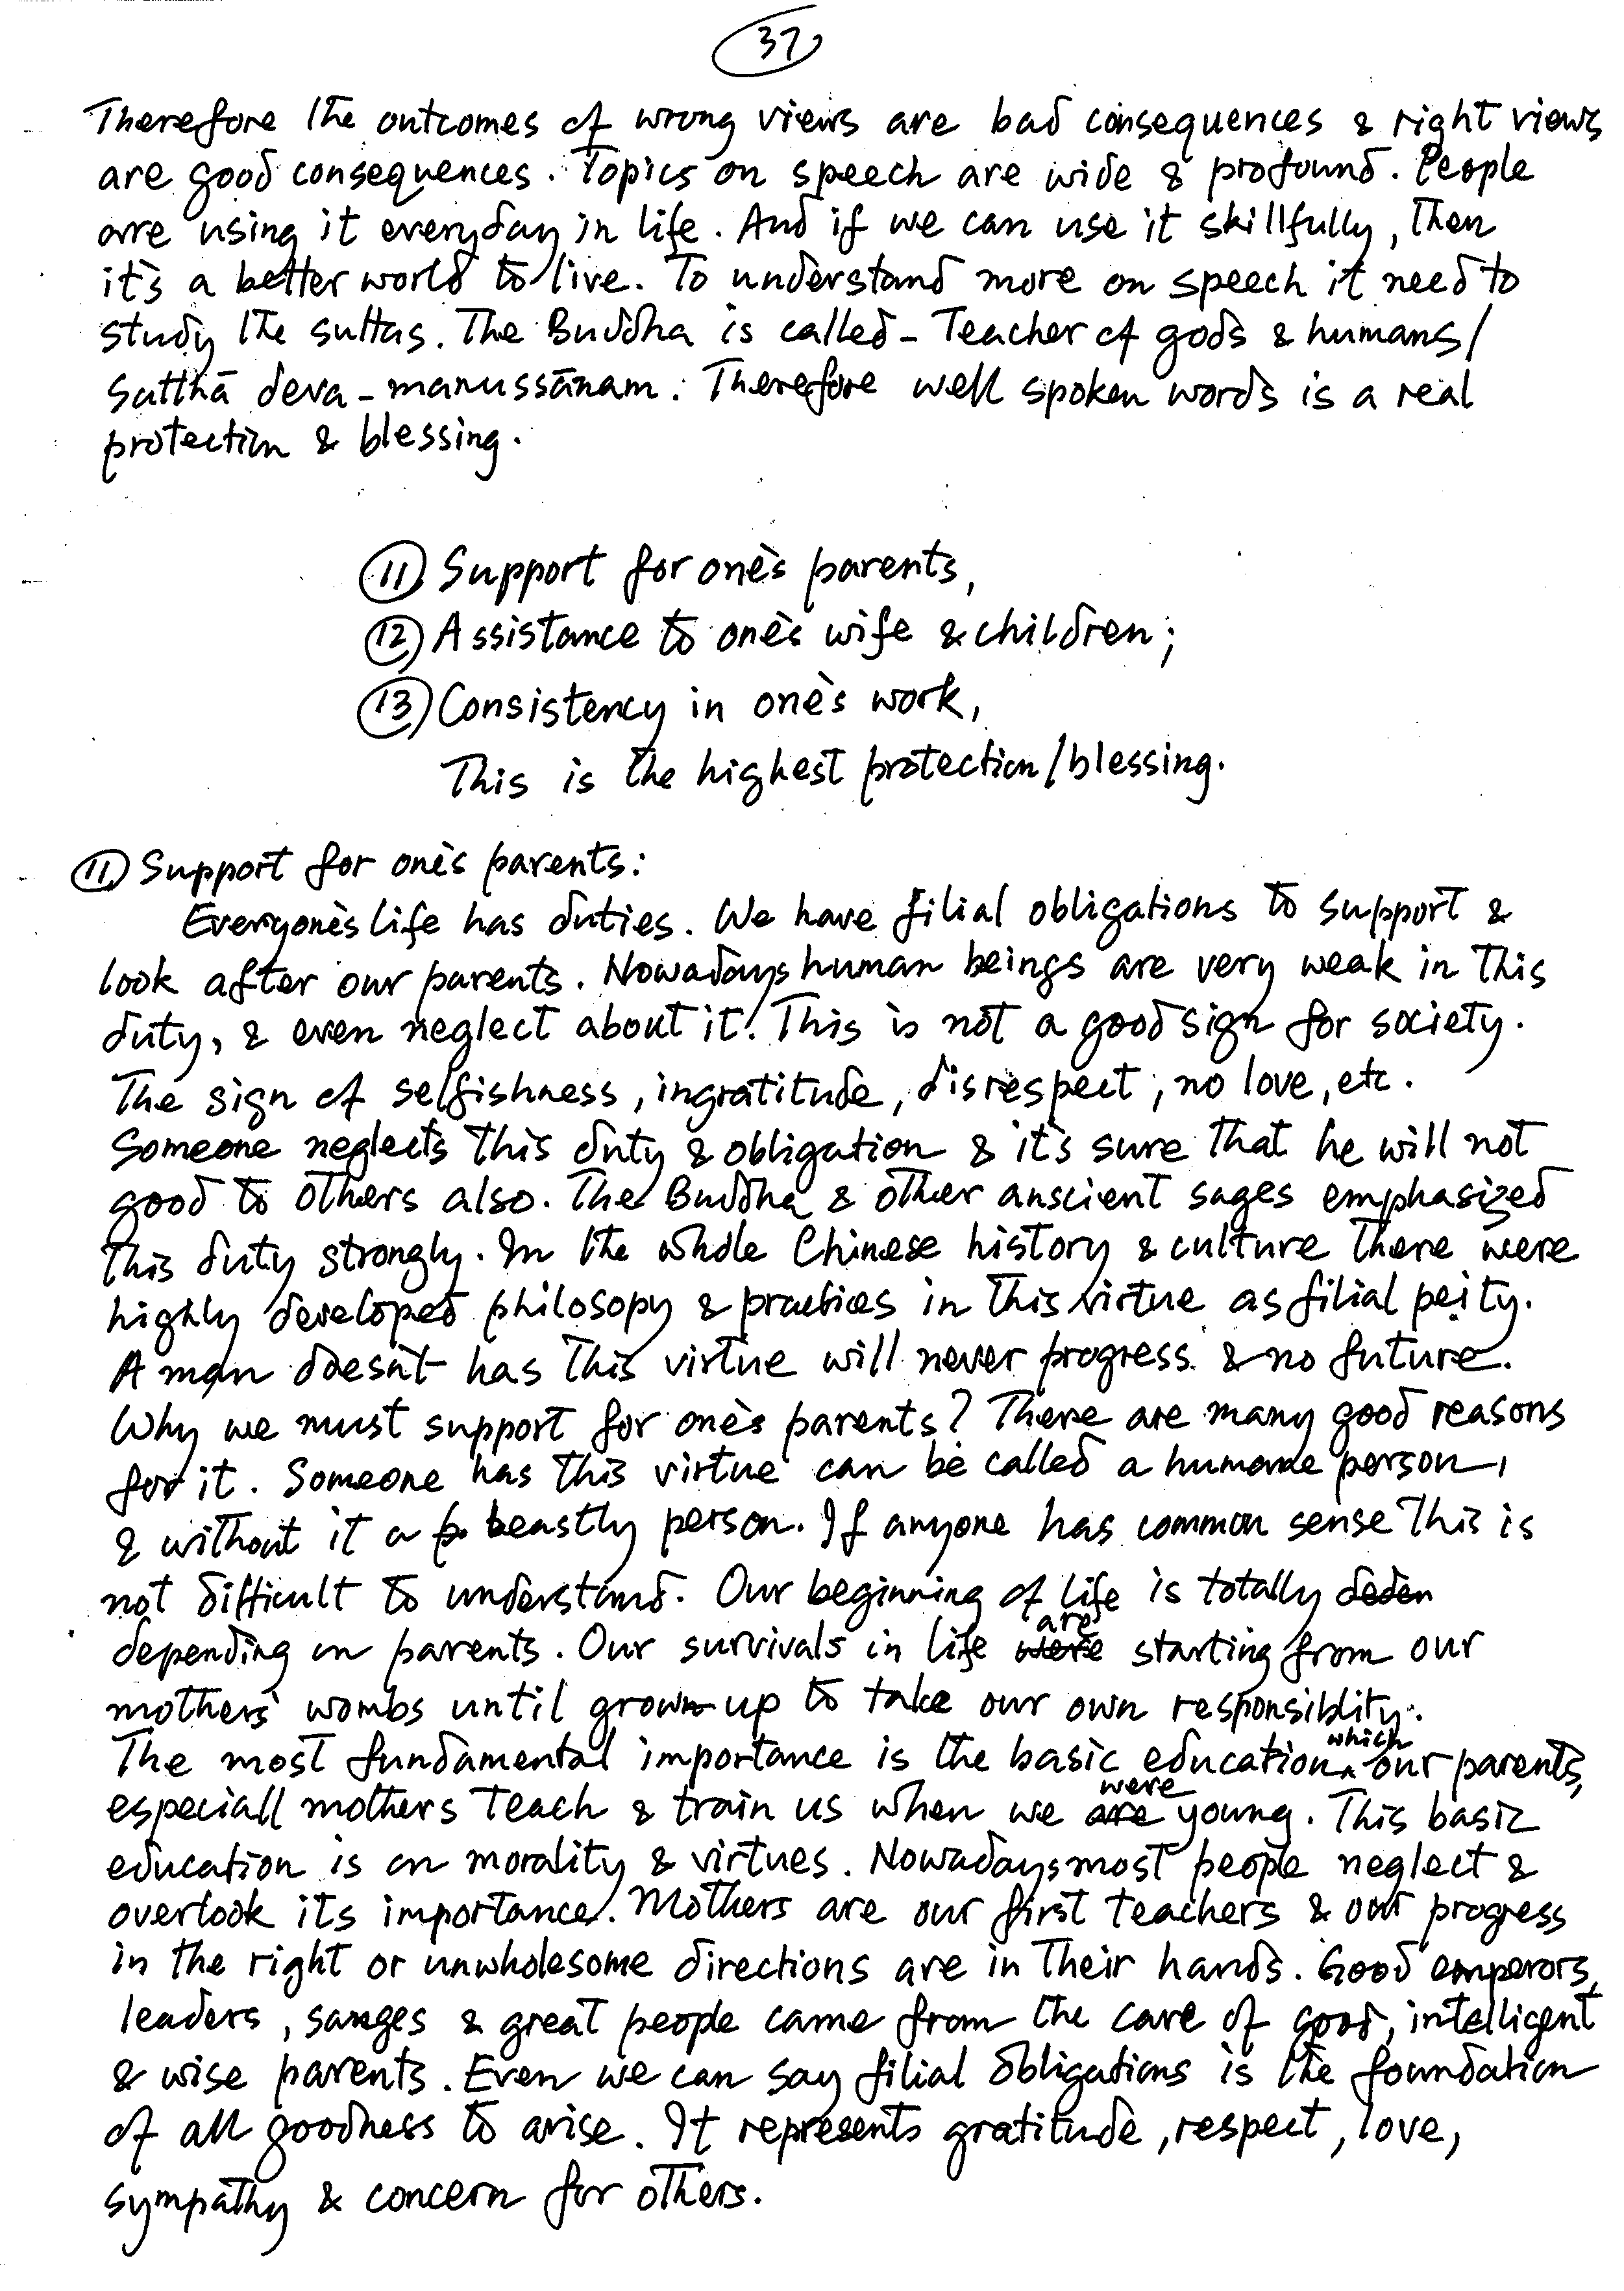 37
Therefore the outcomes of wrong views are bad consequences & right views
are good consequences. Topics on speech are wide & profound. People
are using it everyday in life. And if we can use it skillfully, then
it's a better world to live. To understand more on speech it need to
study the suttas. The Buddha is called - Teacher of gods & humans/
Satthā deva-manussānam. Therefore well spoken words is a real
protection & blessing.
⑪ Support for one's parents,
⑫ Assistance to one's wife & children;
⑬ Consistency in one's work,
This is the highest protection/blessing.
⑪ Support for one's parents:
Everyone's life has duties. We have filial obligations to support &
look after our parents. Nowadays human beings are very weak in this
duty, & even neglect about it! This is not a good sign for society.
The sign of selfishness, ingratitude, disrespect, no love, etc.
Someone neglects this duty & obligation & it's sure that he will not
good to others also. The Buddha & other anscient sages emphasized
this duty strongly. In the whole Chinese history & culture there were
highly developed philosopy & practices in this virtue as filial peity.
A man doesn't has this virtue will never progress & no future.
Why we must support for one's parents? There are many good reasons
for it. Someone has this virtue can be called a humane person,
& without it a beastly person. If anyone has common sense this is
not difficult to understand. Our beginning of life is totally deden
depending on parents. Our survivals in life were are starting from our
mothers' wombs until grown up to take our own responsiblity.
The most fundamental importance is the basic education which our parents,
especiall mothers teach & train us when we are were young. This basic
education is on morality & virtues. Nowadays most people neglect &
overlook its importance. Mothers are our first teachers & our progress
in the right or unwholesome directions are in their hands. Good emperors,
leaders, sages & great people came from the care of good, intelligent
& wise parents. Even we can say filial obligations is the foundation
of all goodness to arise. It represents gratitude, respect, love,
sympathy & concern for others.